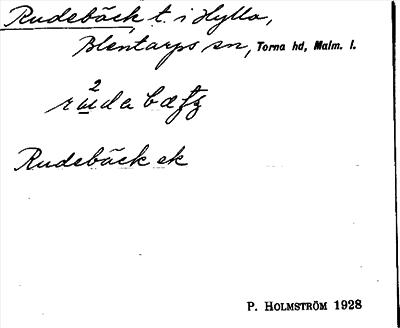 Rudebäck, t. i Hylla,
Blentarps sn, Torna hd, Malm. l.
2
Rudebäck ek
P. HOLMSTRÖM 1928